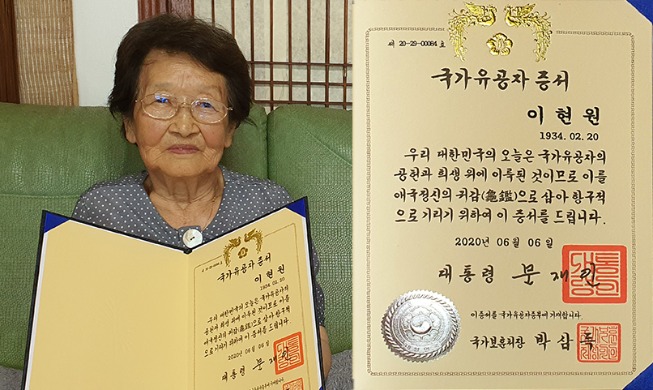 국가유공자 증서
이현원
1934. 02. 20
우리 대한민국의 오늘은 국가유공자의
공헌과 희생 위에 이룩된 것이므로 이를
애국정신의 귀감(龜鑑)으로 삼아 항구적
으로 기리기 위하여 이 증서를 드립니다.
2020년 06월 06일
대통령 문재인
제 20-29-00084 호
국가유공자 증서
이현원
1934. 02. 20
우리 대한민국의 오늘은 국가유공자의
공헌과 희생 위에 이룩된 것이므로 이를
애국정신의 귀감(龜鑑)으로 삼아 항구적
으로 기리기 위하여 이 증서를 드립니다.
2020년 06월 06일
대통령 문재인
이 증서를 국가유공자증부에 기재합니다.
국가보훈처장 박삼득